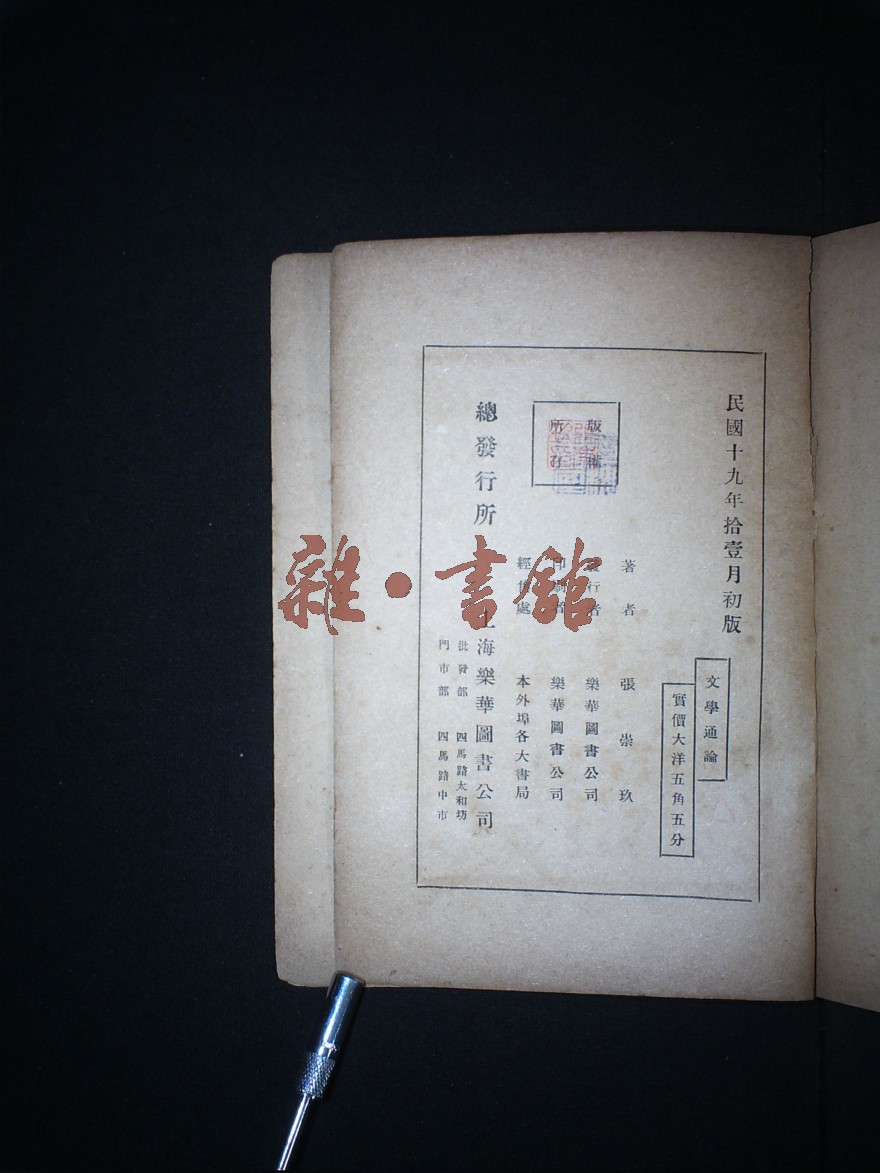 民國十九年拾壹月初版
文學通論
實價大洋五角五分
著者 張崇玖
發行者 樂華圖書公司
印刷者 樂華圖書公司
經售處 本外埠各大書局
版權
所有
總發行所 上海樂華圖書公司
批發部 四馬路太和坊
門市部 四馬路中市
雜·書館